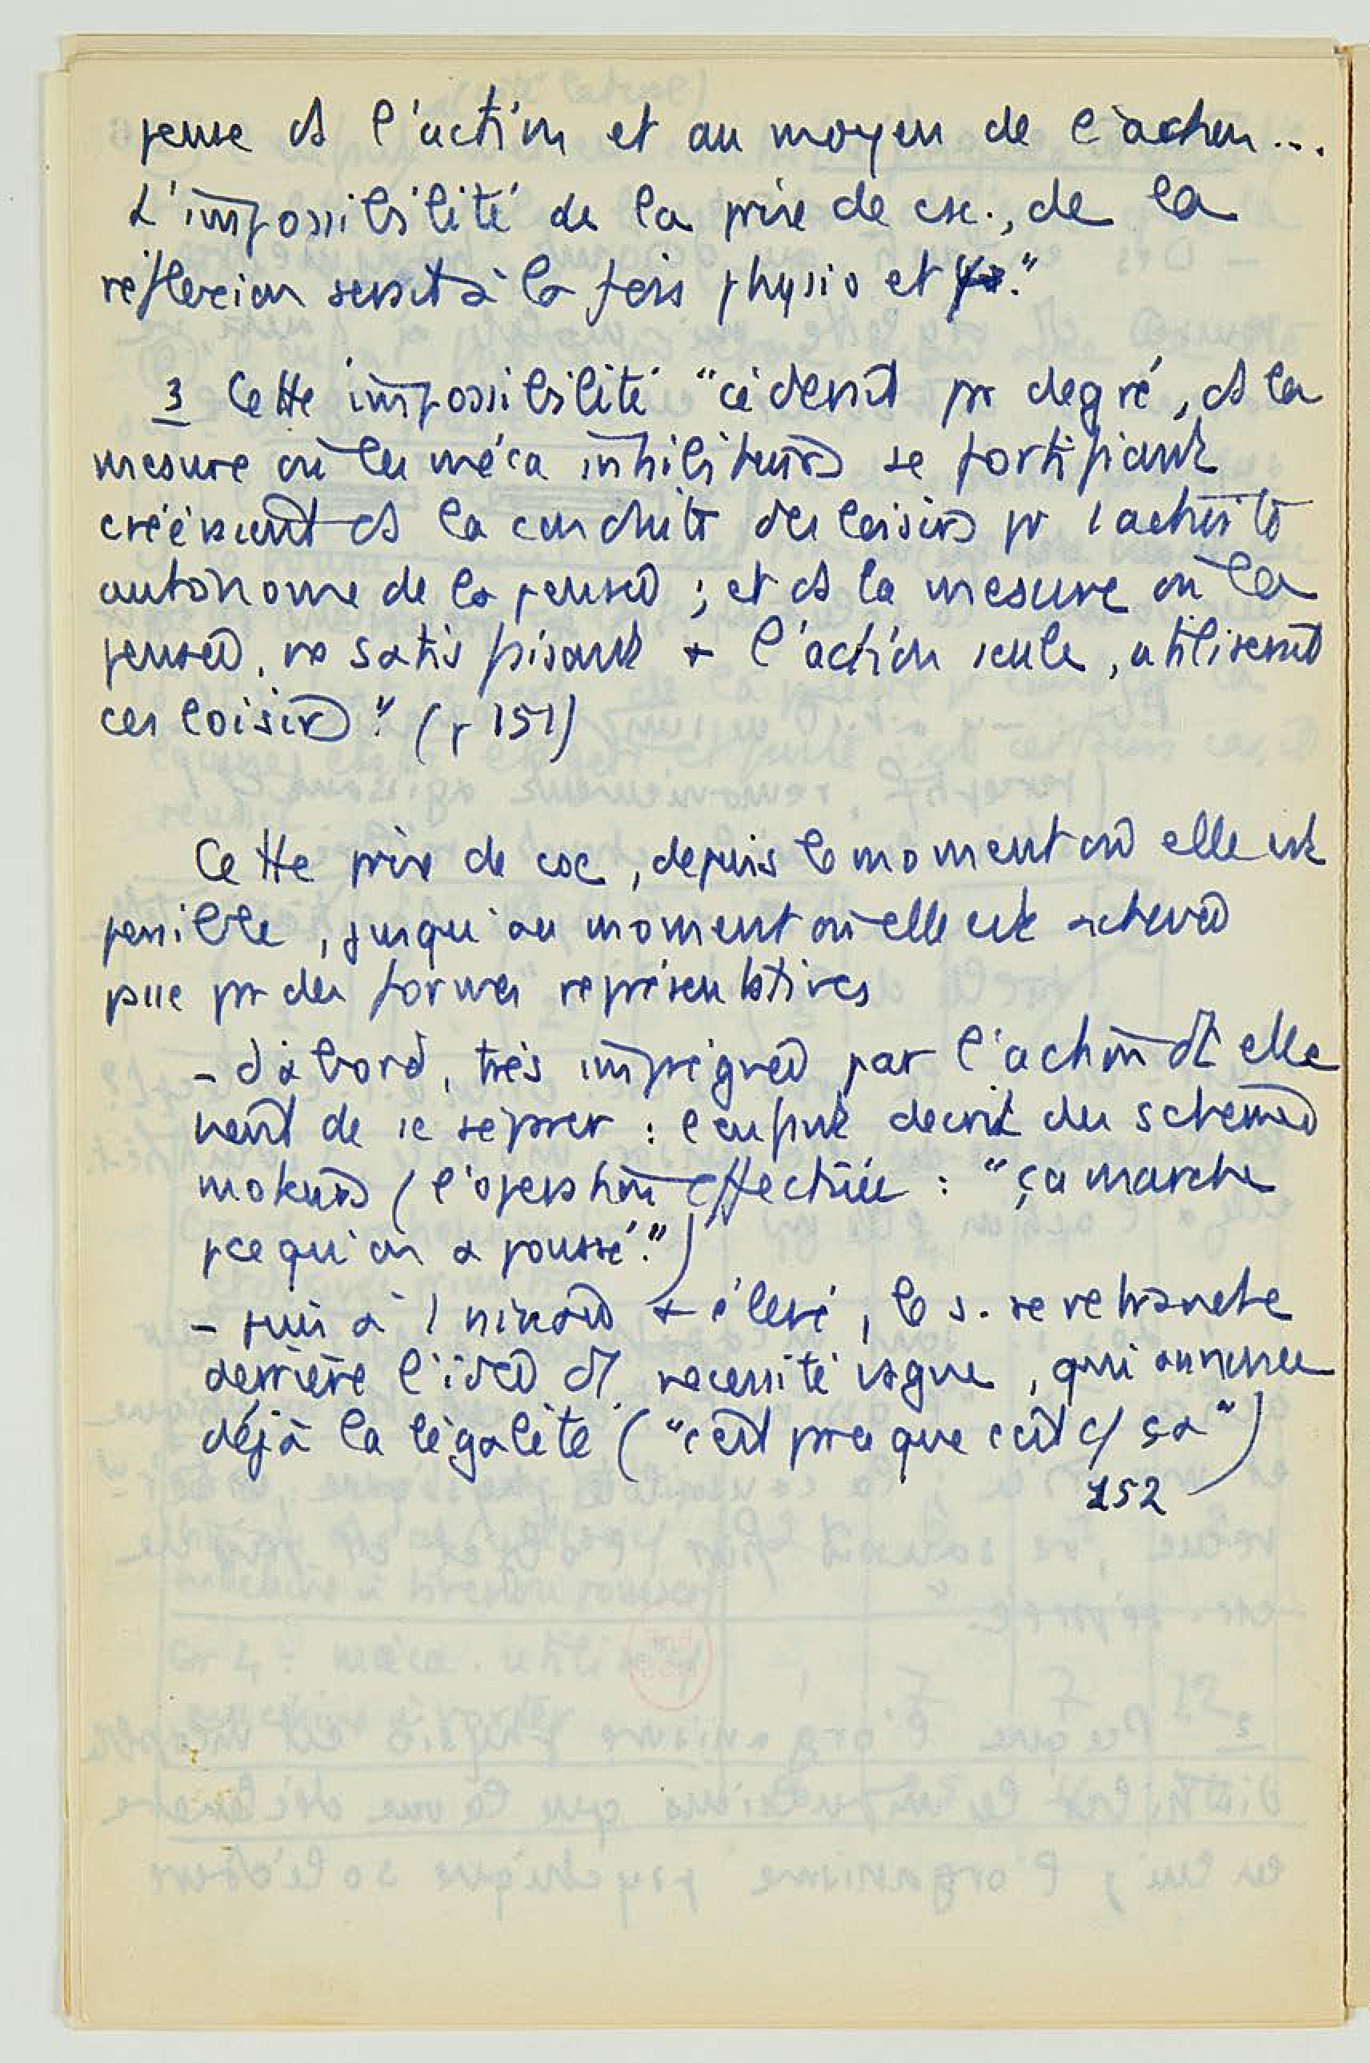 pense ds l'action et au moyen de l'action...
L'impossibilité de la prise de csc., de la
réflexion serait à la fois physio et ψ."
3 Cette impossibilité "cèderait pr degré, ds la
mesure où les méca inhibiteurs se fortifiant
créeraient ds la conduite des loisirs pr l'activité
autonome de la pensée ; et ds la mesure où la
pensée, se satisfaisant + l'action seule, utiliserait
ces loisirs". (p 151)
Cette prise de csc, depuis le moment où elle est
possible, jusqu'au moment où elle est achevée
psse pr des formes représentatives
- d'abord, très imprégnée par l'action dt elle
vient de se séparer : l'enfant décrit des schémas
moteurs (l'opération effectuée : "ça marche
pce qu'on a poussé".)
- puis à 1 niveau + élevé, le s. se retranche
derrière l'idée d'1 nécessité vague, qui annonce
déjà la légalité ("c'est pce que c'est c/ ça")
152